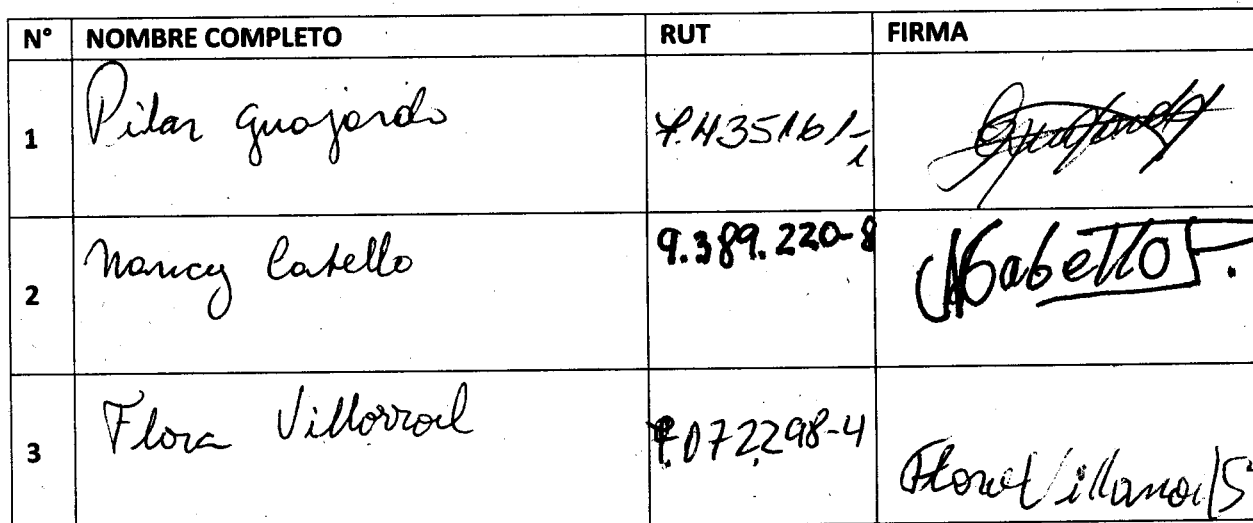 N° NOMBRE COMPLETO RUT FIRMA
1 Pilar Guajardo
2 Nancy Cabello 9.389.220-8 NCabello F.
3 Flora Villarroel 072298-4 Flora Villarroel S